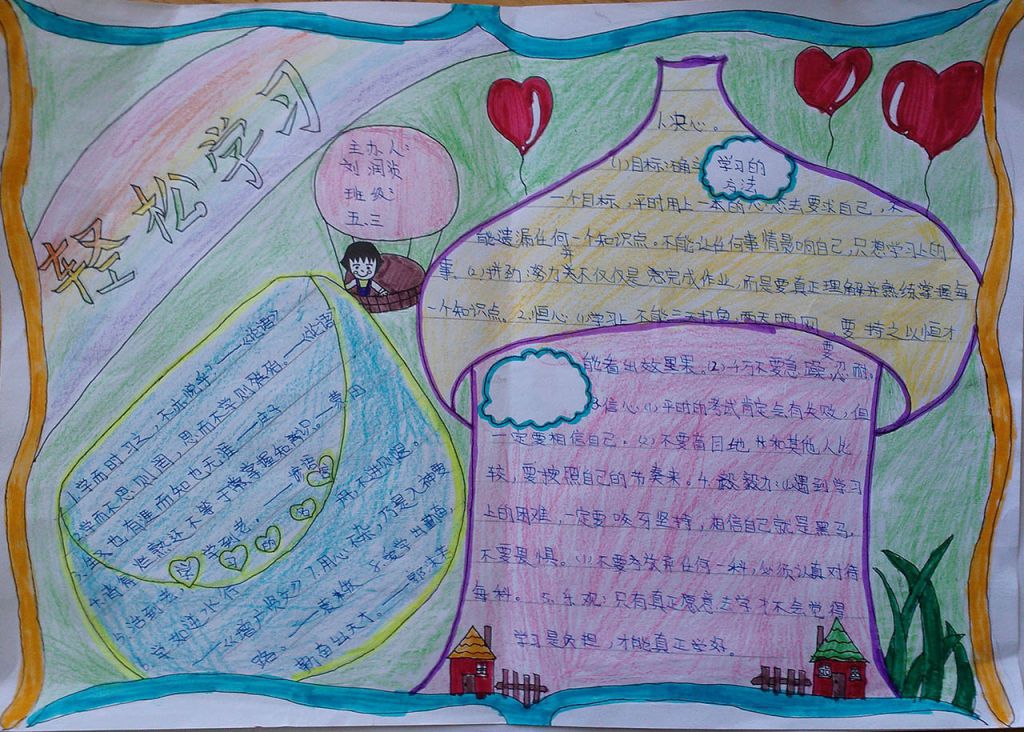 轻松学习
主办人:
刘润
班级:
五.三
学习的
方法
1.决心。
(1)目标:确
一个目标,平时用上一本的心态去要求自己,不
能遗漏任何一个知识点。不能让任何事情影响自己,只想学习上的
事。(2)拼劲:努力并不仅仅是完成作业,而是要真正理解并熟练掌握每
一个知识点。2.恒心(1)学习上不能三天打鱼,两天晒网,要持之以恒才
能看出效果。(2)千万不要急躁,要忍耐。
3.信心:(1)平时的考试肯定会有失败,但
一定要相信自己。(2)不要盲目地和其他人比
较,要按照自己的节奏来。4.毅力:(1)遇到学习
上的困难,一定要咬牙坚持,相信自己就是黑马,
不要畏惧。(1)不要放弃任何一科,必须认真对待
每科。5.乐观:只有真正愿意去学才不会觉得
学习是负担,才能真正学好。
1.学而时习之,不亦悦乎?——《论语》
2.学而不思则罔,思而不学则殆。——《论语
也有涯而知也无涯——庄子
4.背得烂熟还不等于掌握知识。——蒙田
5.活到老,学到老。
6.学如逆水行舟,不进则退。
——《增广贤文》7.用心不杂,乃是入神要
路。——袁枚 8.宏学出勤奋,
勤奋出天才。——郭沫若
学习的名言